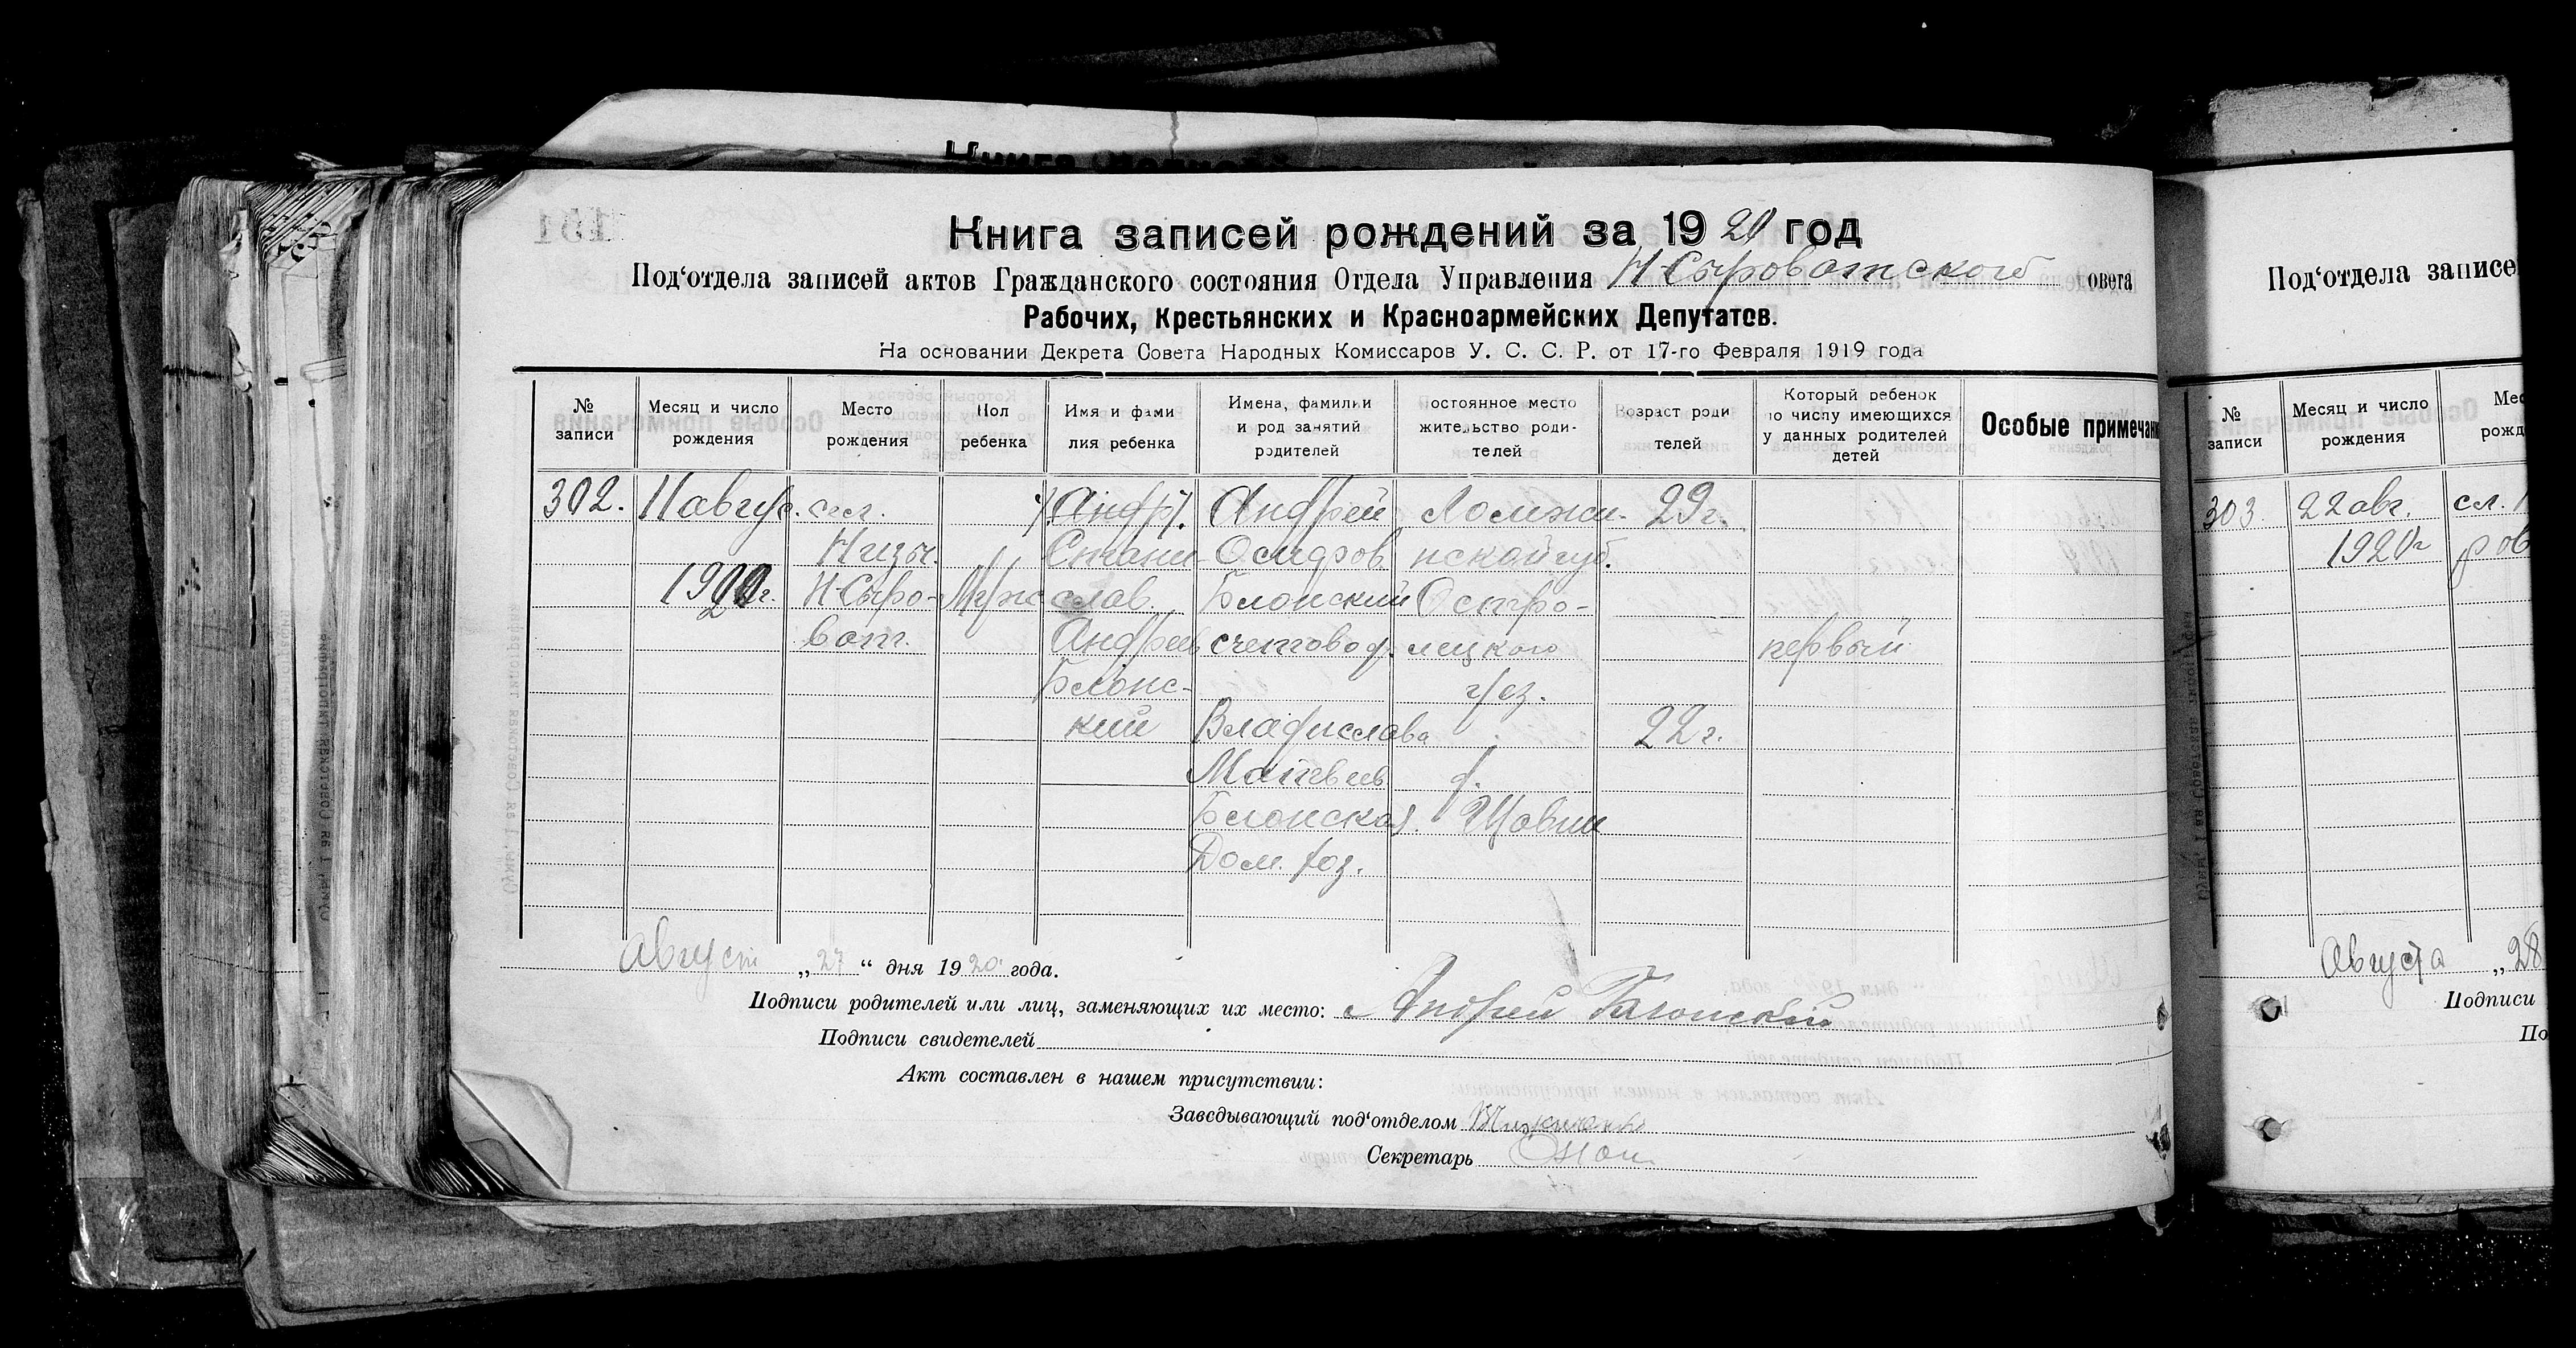 Книга записей рождений за 1920 год
Под‘отдела записей актов Гражданского состояния Отдела Управления Н-Сыроватского овета
Рабочих, Крестьянских и Красноармейских Депутатов.
На основании Декрета Совета Народных Комиссаров У. С. С. Р. от 17-го Февраля 1919 года
№ записи
Месяц и число рождения
Место рождения
Пол ребенка
Имя и фами лия ребенка
Имена, фамилии и род занятий родителей
остоянное место жительство роди- телей
Возраст роди телей
Который ребенок по числу имеющихся у данных родителей детей
Особые примечан
302.
11 авгус.
1920г.
сл.
Низы.
Н-Сыро-
ват.
Муж
Андр.
Стани-
слав
Андреев
Блонс-
кий
Андрей
Осипов.
Блонский
счетовод.
Владислава
Матвеев.
Блонская.
Дом. хоз.
Ломжи-
нской губ.
Остро-
лецкого
уез.
д.
Щавин
29г.
22г.
первый
Август „27“ дня 1920 года.
Подписи родителей или лиц, заменяющих их место: Андрей Блонский
Подписи свидетелей
Акт составлен в нашем присутствии:
Заведывающий под‘отделом
Секретарь
Под‘отдела записе
№ записи
Месяц и число рождения
Мес рожд
303.
22 авг.
1920г
сл.
ров
Августа „28
Подписи
По